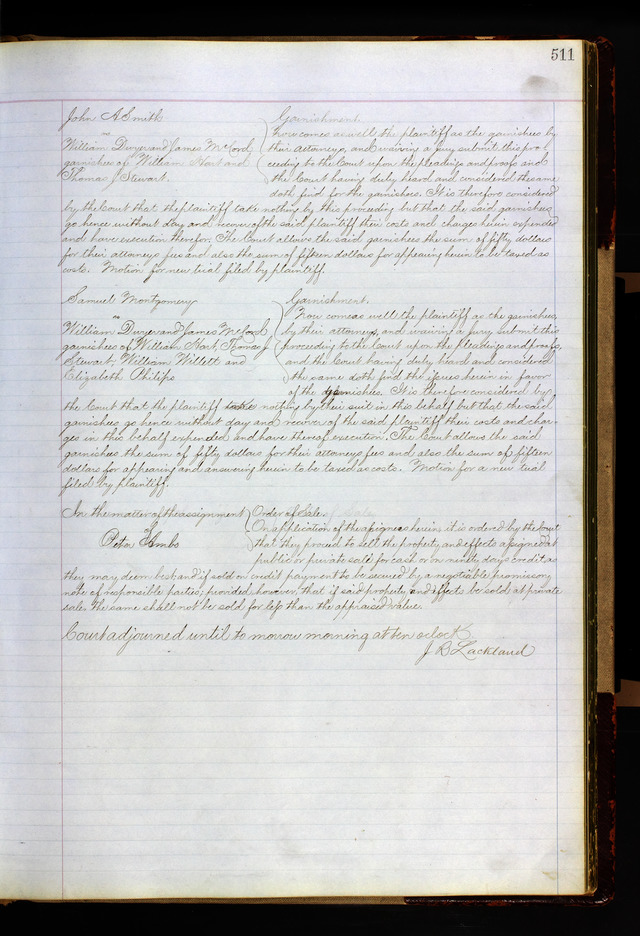 511
John A Smith } Garnishment.
vs Now comes as well the plaintiff as the garnishees by
William Dwyer and James McCord, their attorneys, and waiving a jury submit this pro-
garnishees of William Hart and ceeding to the Court upon the pleadings and proofs and
Thomas J Stewart. the Court having duly heard and considered the same
doth find for the garnishees. It is therefore considered
by the Court that the plaintiff take nothing by this proceeding but that the said garnishees
go hence without day and recover of the said plaintiff their costs and charges herein expended
and have execution therefor. The Court allows the said garnishees the sum of fifty dollars
for their attorneys fees and also the sum of fifteen dollars for appearing herein to be taxed as
costs. Motion for new trial filed by plaintiff.
Samuel Montgomery } Garnishment.
vs Now comes as well the plaintiff as the garnishees,
William Dwyer and James McCord by their attorneys, and waiving a jury submit this
garnishees of William Hart, Thomas J proceeding to the Court upon the pleadings and proofs,
Stewart, William Willett and and the Court having duly heard and considered
Elizabeth Philips the same doth find the issues herein in favor
of the garnishees. It is therefore considered by
the Court that the plaintiff take nothing by their suit in this behalf but that the said
garnishees go hence without day and recover of the said plaintiff their costs and char-
ges in this behalf expended and have thereof execution. The Court allows the said
garnishees the sum of fifty dollars for their attorneys fees and also the sum of fifteen
dollars for appearing and answering herein to be taxed as costs. Motion for a new trial
filed by plaintiff.
In the matter of the assignment } Order of Sale.
of On application of the assignee herein, it is ordered by the Court
Peter Ambs that they proceed to sell the property and effects assigned at
public or private sale for cash or on ninety days credit as
they may deem best and if sold on credit payment to be secured by a negotiable promissory
note of responsible parties; provided, however, that if said property and effects be sold at private
sale, the same shall not be sold for less than the appraised value.
Court adjourned until to morrow morning at ten oclock.
J B Lackland